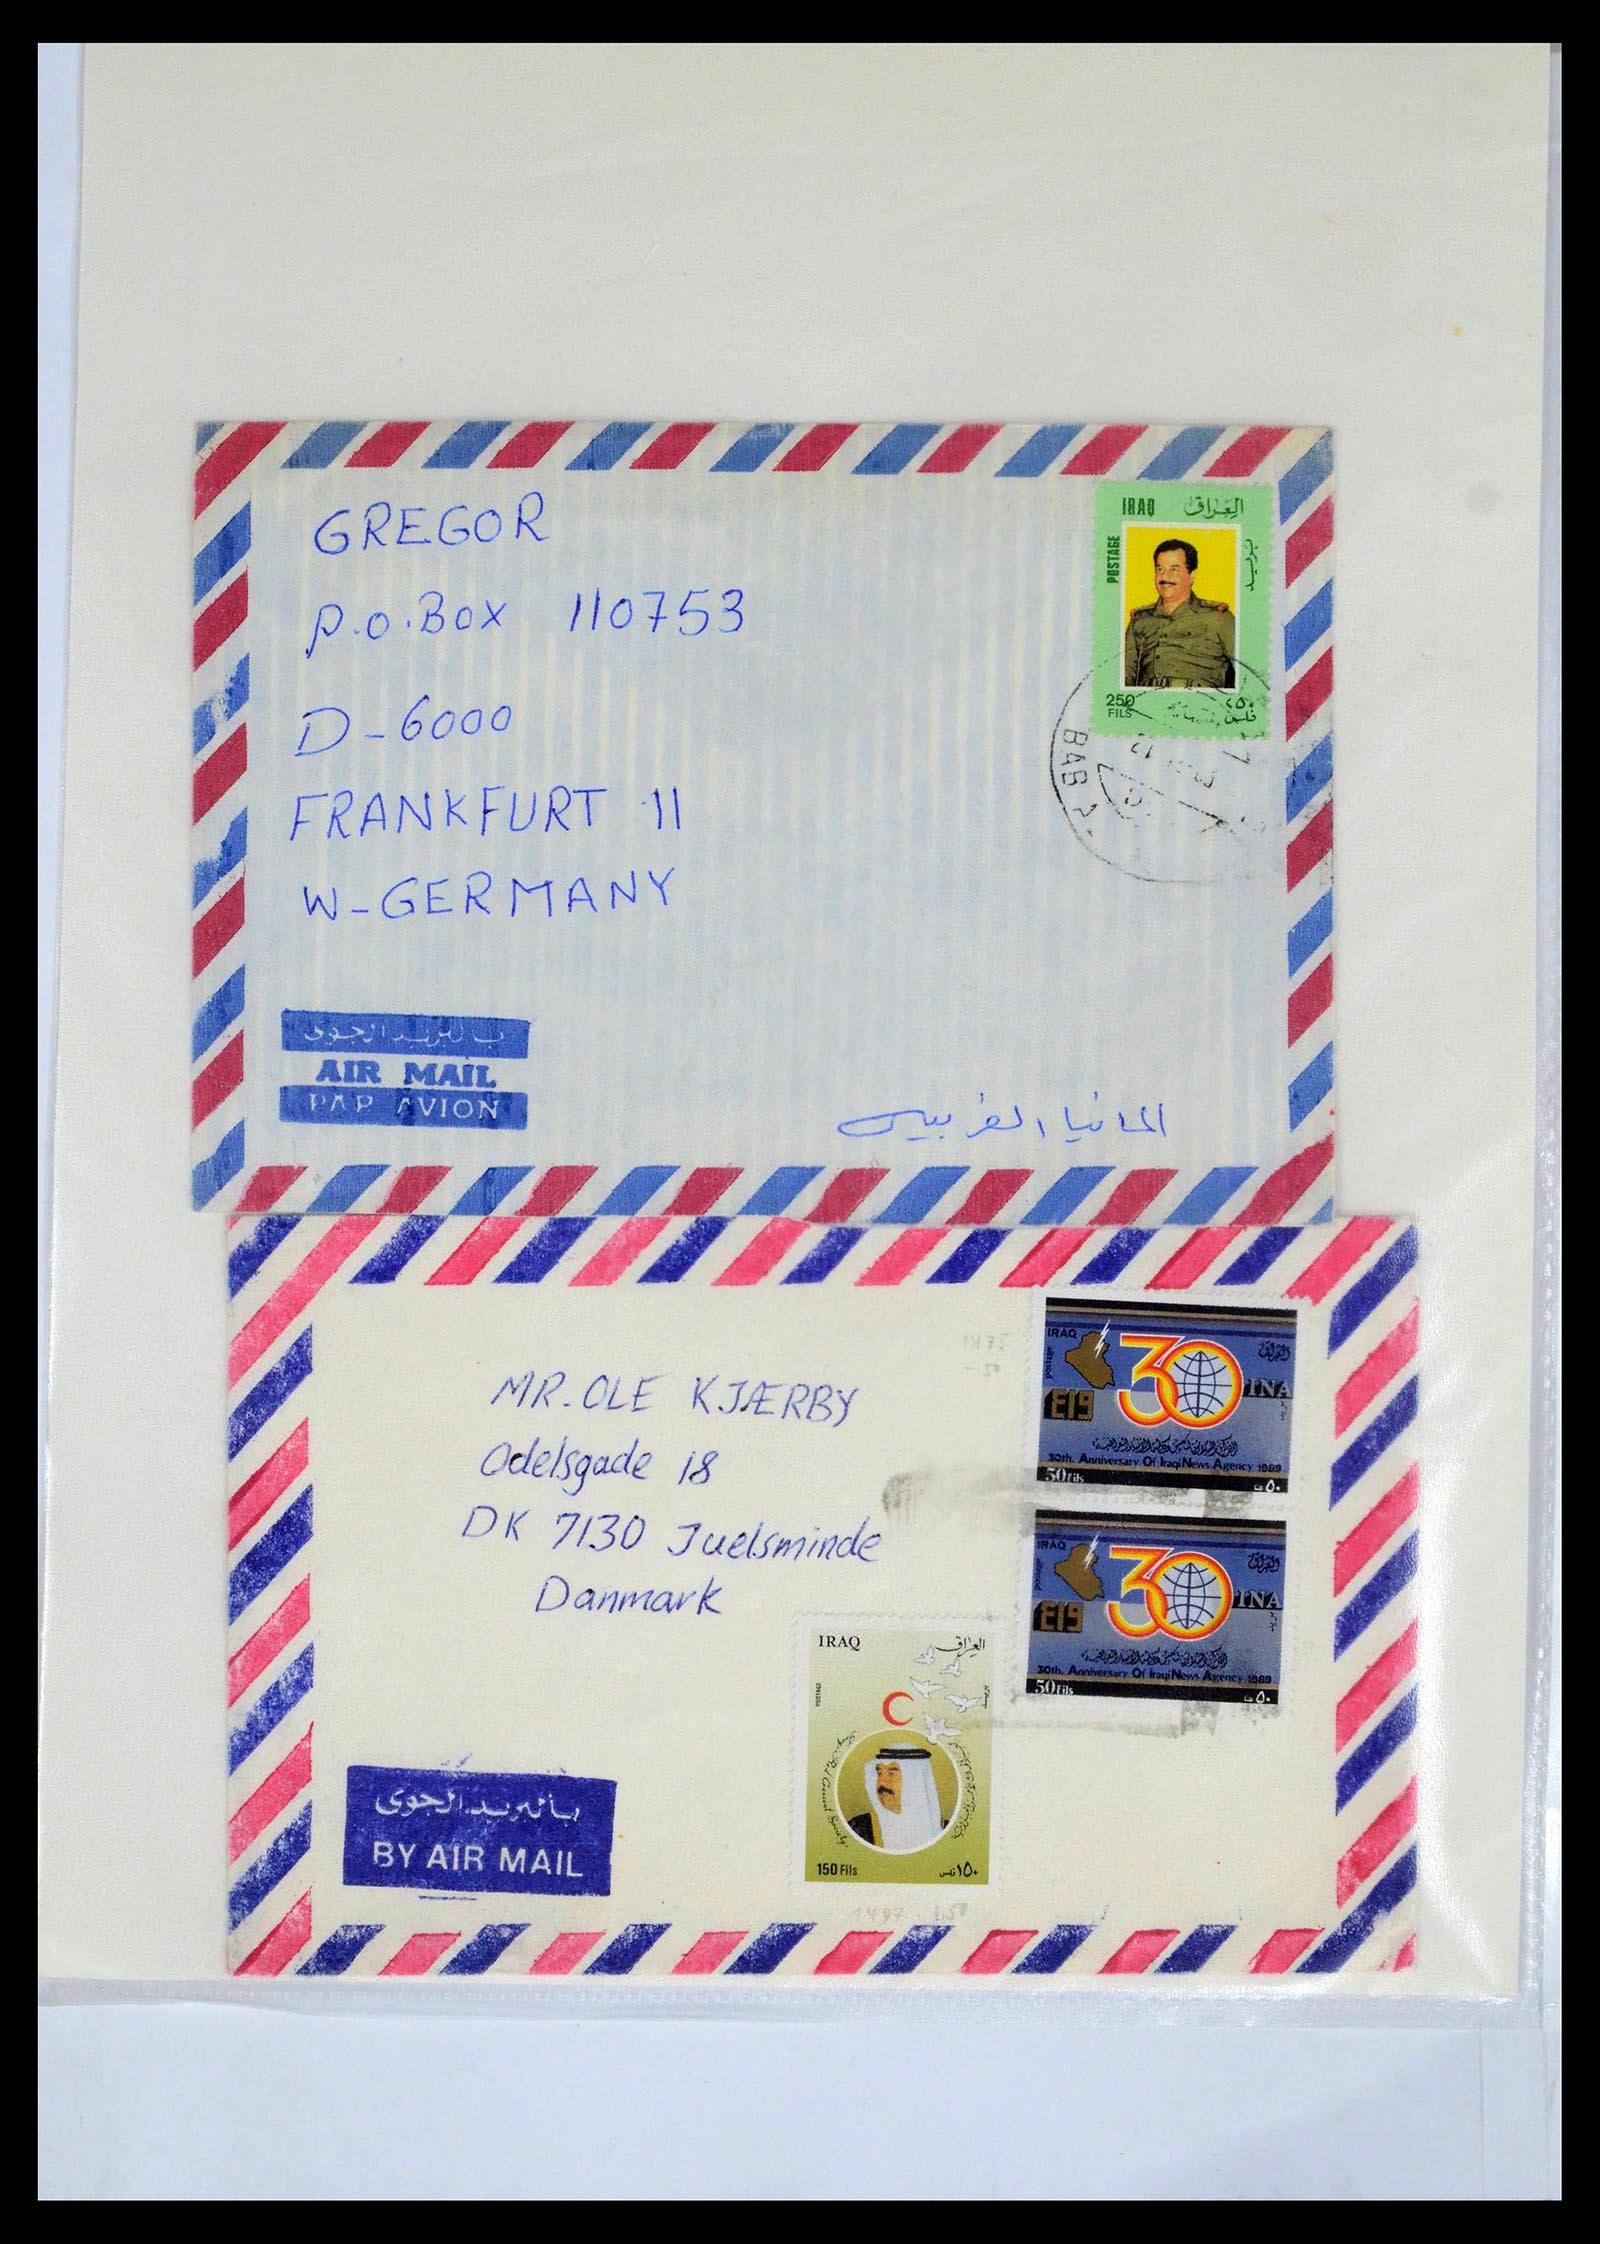 GREGOR
P.O.BOX 110753
D-6000
FRANKFURT 11
W-GERMANY
IRAQ العراق
POSTAGE
بريد
250 ٢٥٠
FILS فلس
BAB
بالبريد الجوى
AIR MAIL
PAR AVION
المانيا الغربيه
MR. OLE KJÆRBY
Odelsgade 18
DK 7130 Juelsminde
Danmark
IRAQ العراق
postage
30 INA
30th. Anniversary Of Iraqi News Agency 1989
50 Fils ٥٠
IRAQ العراق
30 INA
30th. Anniversary Of Iraqi News Agency 1989
50 Fils ٥٠
IRAQ العراق
POSTAGE بريد
150 Fils ١٥٠ فلس
بالبريد الجوى
BY AIR MAIL
1497 1.50